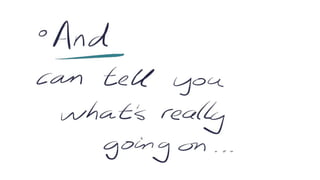 °And
can tell you
what's really
going on...